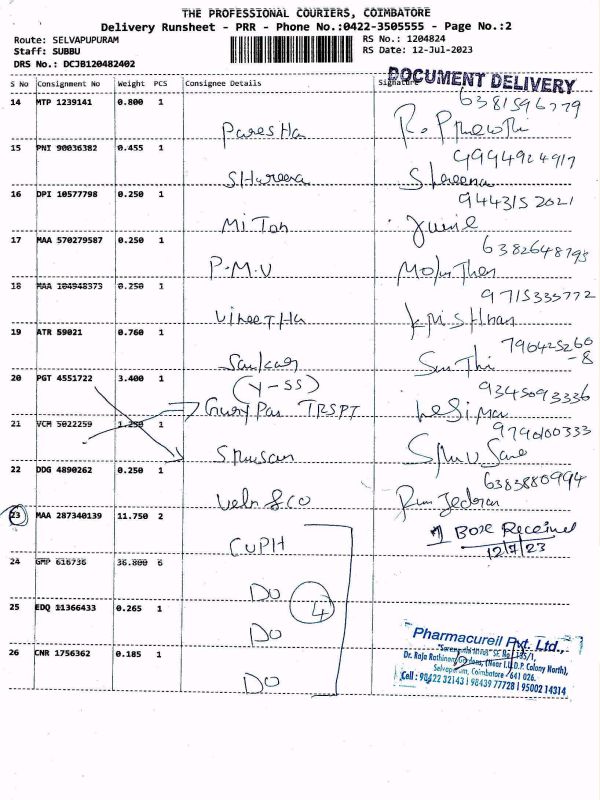 THE PROFESSIONAL COURIERS, COIMBATORE
Delivery Runsheet - PRR - Phone No.:0422-3505555 - Page No.:2
Route: SELVAPUPURAM
RS No.: 1204824
Staff: SUBBU
RS Date: 12-Jul-2023
DRS No.: DCJB120482402
DOCUMENT DELIVERY
S No Consignment No Weight PCS Consignee Details Signature
14 MTP 1239141 0.800 1
15 PNI 90036382 0.455 1
9994924917
Shareena
16 DPI 10577798 0.250 1
9443152021
17 MAA 570279587 0.250 1
P.M.U
18 MAA 104948373 0.250 1
9715335772
19 ATR 59021 0.760 1
790425260
-8
20 PGT 4551722 3.400 1
(Y-SS)
TRSPT
9345093336
21 VCM 5022259 1.250 1
9790100333
22 DDG 4890262 0.250 1
6383880994
23 MAA 287340139 11.750 2
1 Box Received
12/7/23
CUPH
24 GMP 616736 36.800 6
DO
4
25 EDQ 11366433 0.265 1
DO
26 CNR 1756362 0.185 1
DO
Pharmacureil Pvt. Ltd.,
Dr. Raja Rathinam Gardens, (Near I.U.D.P. Colony North),
Selvapuram, Coimbatore - 641 026.
Cell : 98422 32143 | 98439 77728 | 95002 14314